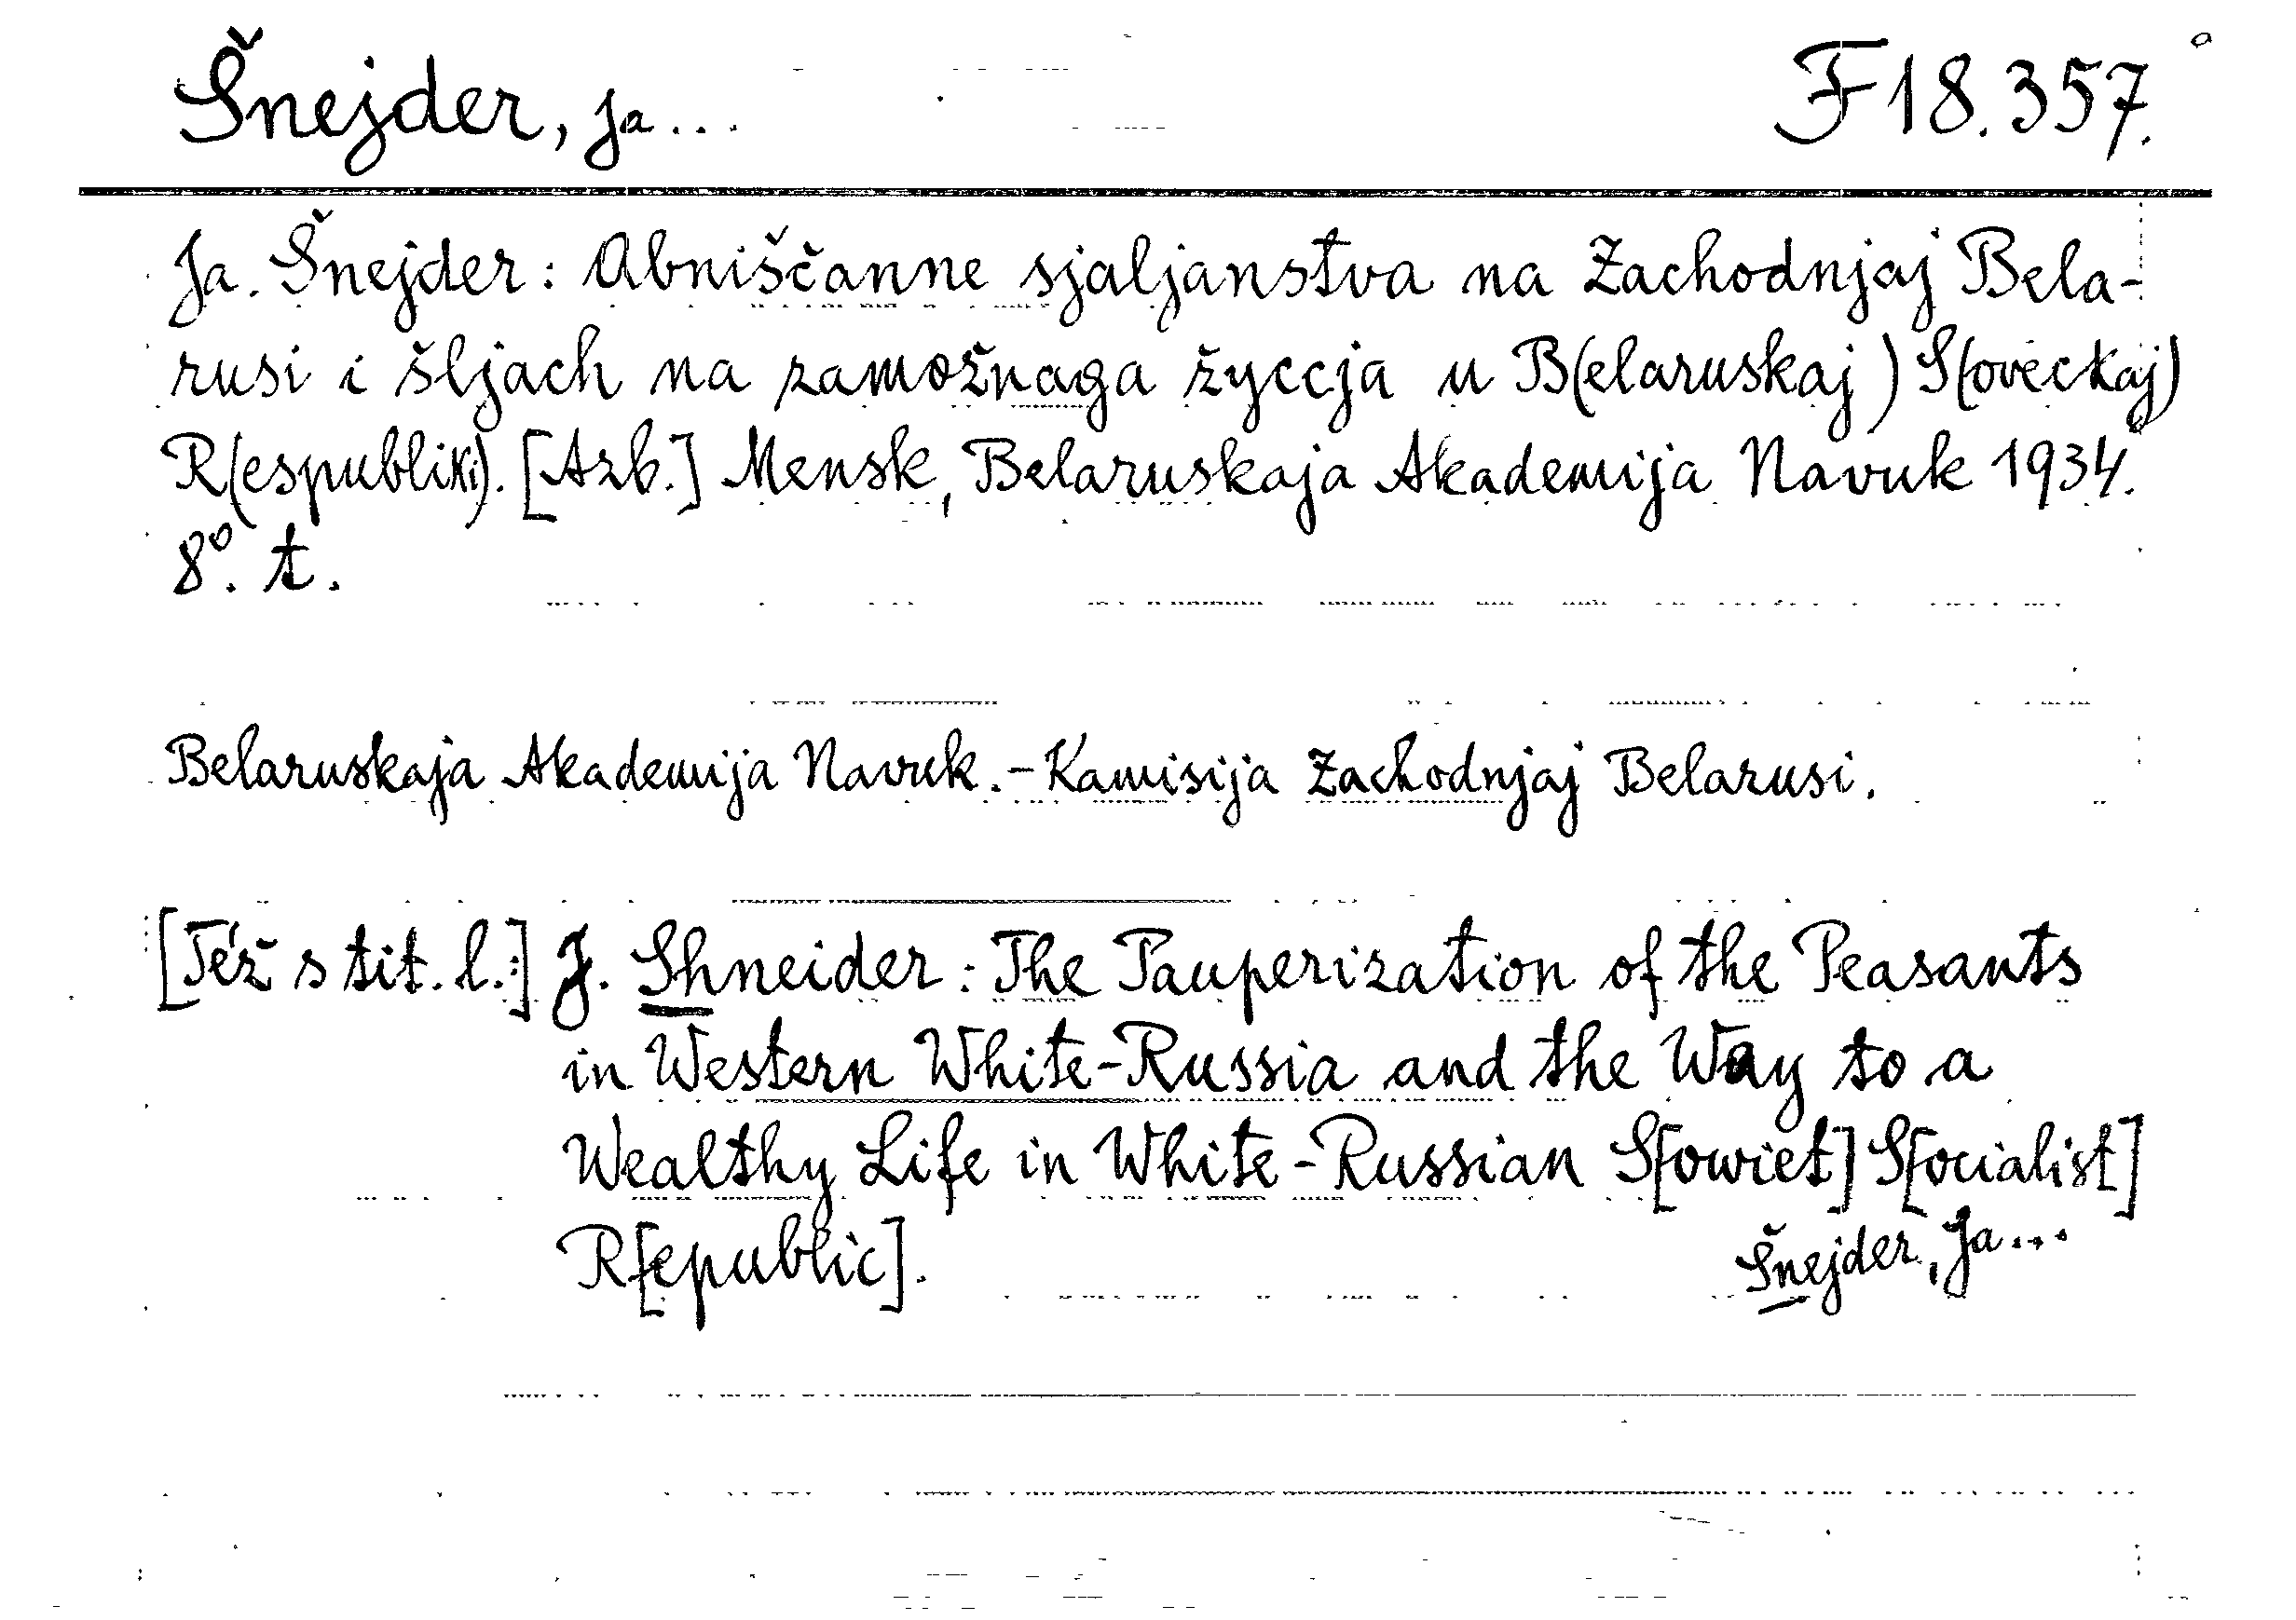 Šnejder, Ja... F 18.357.
Ja. Šnejder: Abniščanne sjaljanstva na Zachodnjaj Bela-
rusi i šljach na zamožnaga žyccja u B(elaruskaj) S(oveckaj)
R(espubliki). [Azb.] Mensk, Belaruskaja Akademija Navuk 1934.
8°. t.
Belaruskaja Akademija Navuk. - Kamisija Zachodnjaj Belarusi.
[Též s tit. l.:] J. Shneider: The Pauperization of the Peasants
in Western White-Russia and the Way to a
Wealthy Life in White-Russian S[owiet] S[ocialist]
R[epublic].
Šnejder, Ja...